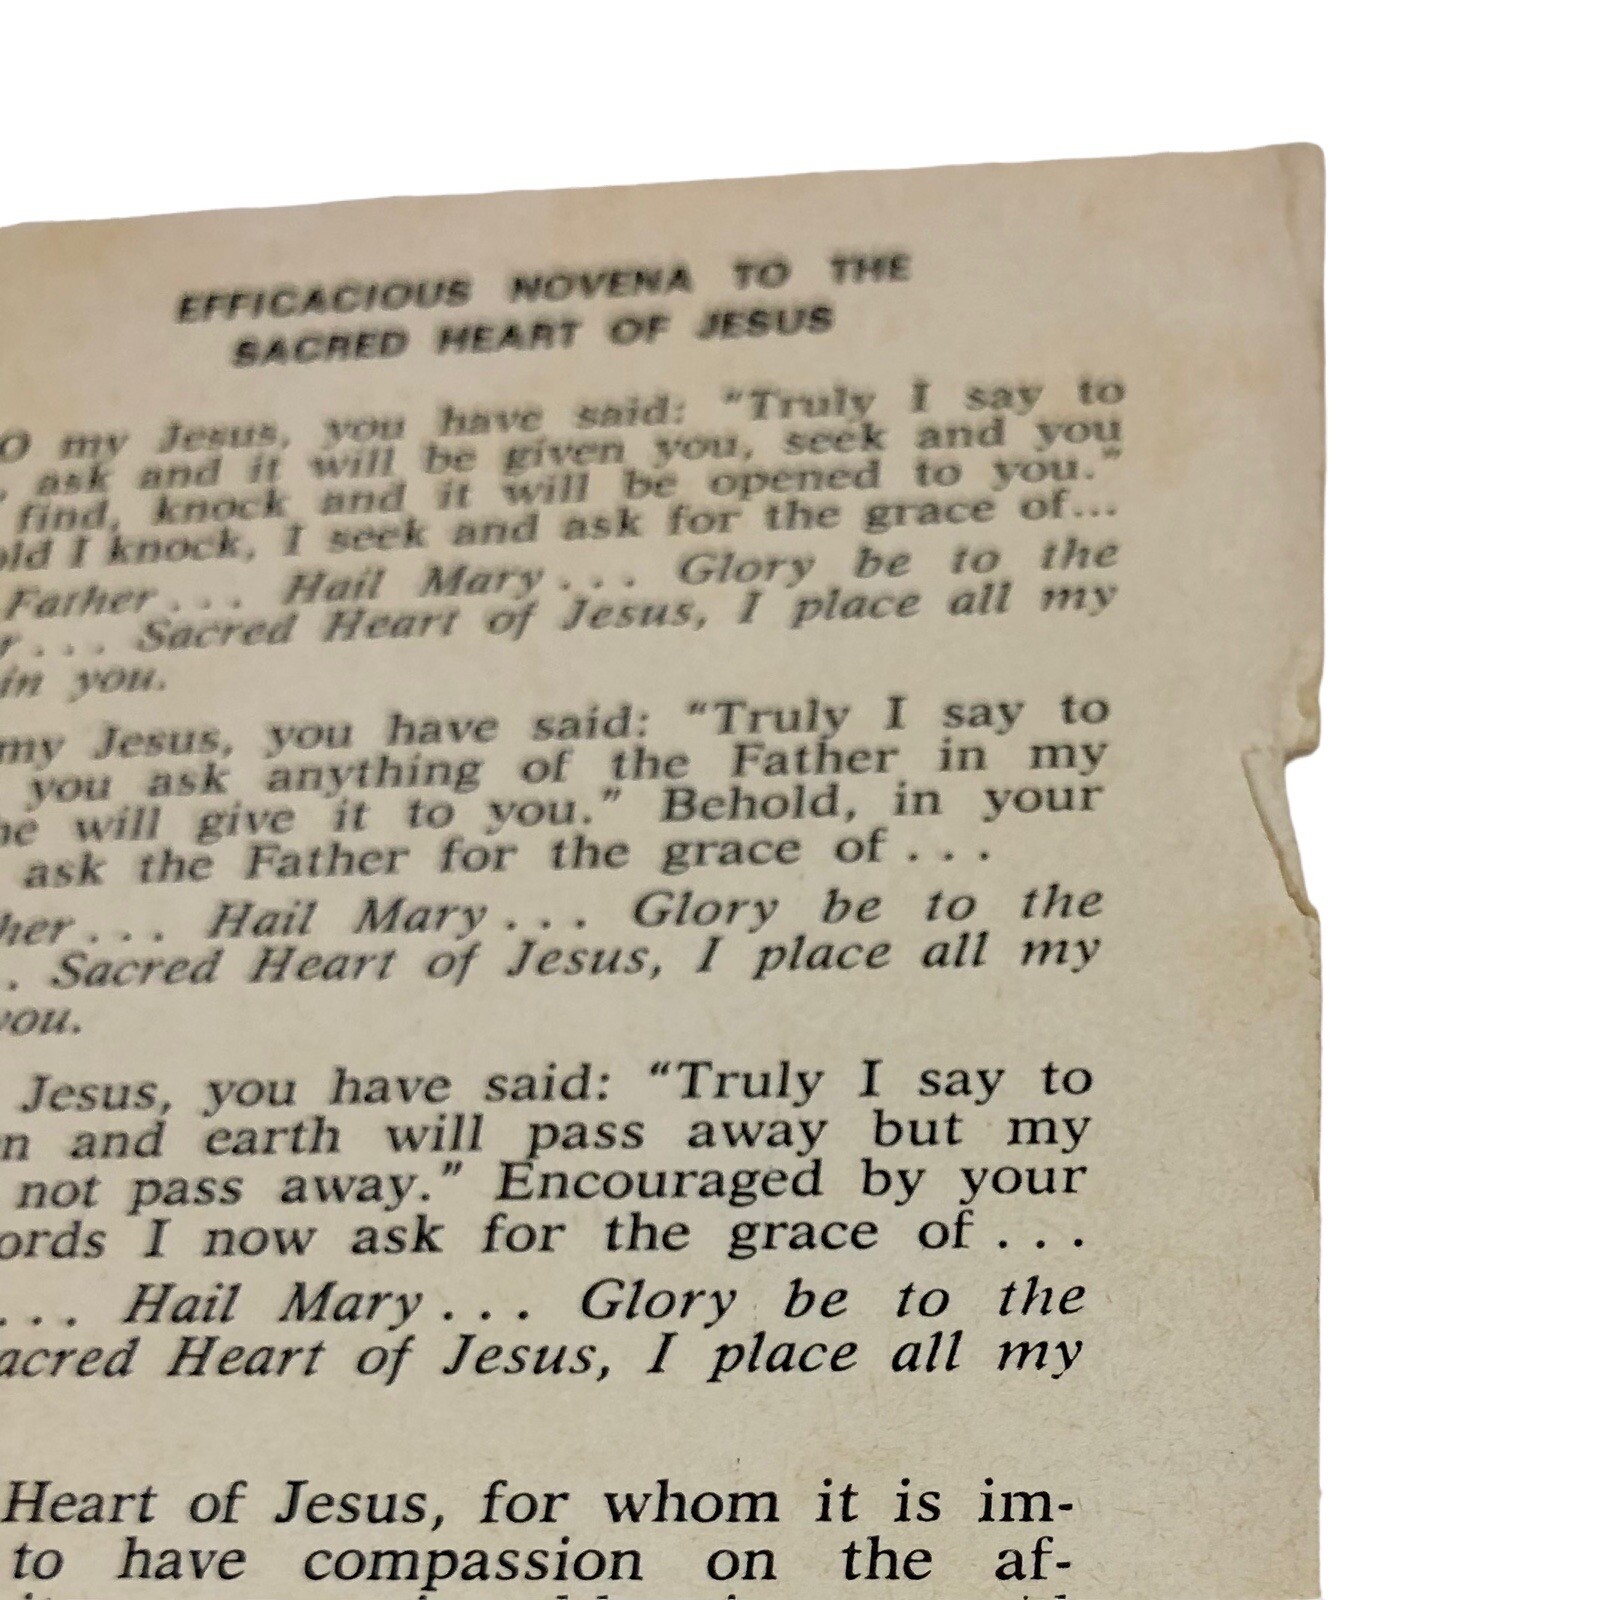 EFFICACIOUS NOVENA TO THE
SACRED HEART OF JESUS
O my Jesus, you have said: "Truly I say to
, ask and it will be given you, seek and you
find, knock and it will be opened to you."
old I knock, I seek and ask for the grace of...
Father... Hail Mary... Glory be to the
r... Sacred Heart of Jesus, I place all my
in you.
my Jesus, you have said: "Truly I say to
you ask anything of the Father in my
he will give it to you." Behold, in your
ask the Father for the grace of...
her... Hail Mary... Glory be to the
. Sacred Heart of Jesus, I place all my
you.
Jesus, you have said: "Truly I say to
n and earth will pass away but my
not pass away." Encouraged by your
ords I now ask for the grace of...
... Hail Mary... Glory be to the
acred Heart of Jesus, I place all my
Heart of Jesus, for whom it is im-
to have compassion on the af-